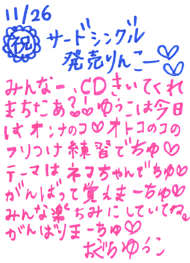 11/26
祝 サードシングル
発売りんこー♡♡
みんなー、CDきいてくれ
まちたあ?!ゆうこは今日
はオンナのコ♡オトコのコの
フリつけ練習でちゅ♡
テーマはネコちゃんでちゅ♡
がんばって覚えまーちゅ♡
みんな楽ちみにしていてね。
がんばりまーちゅ♡
おぐらゆうこ